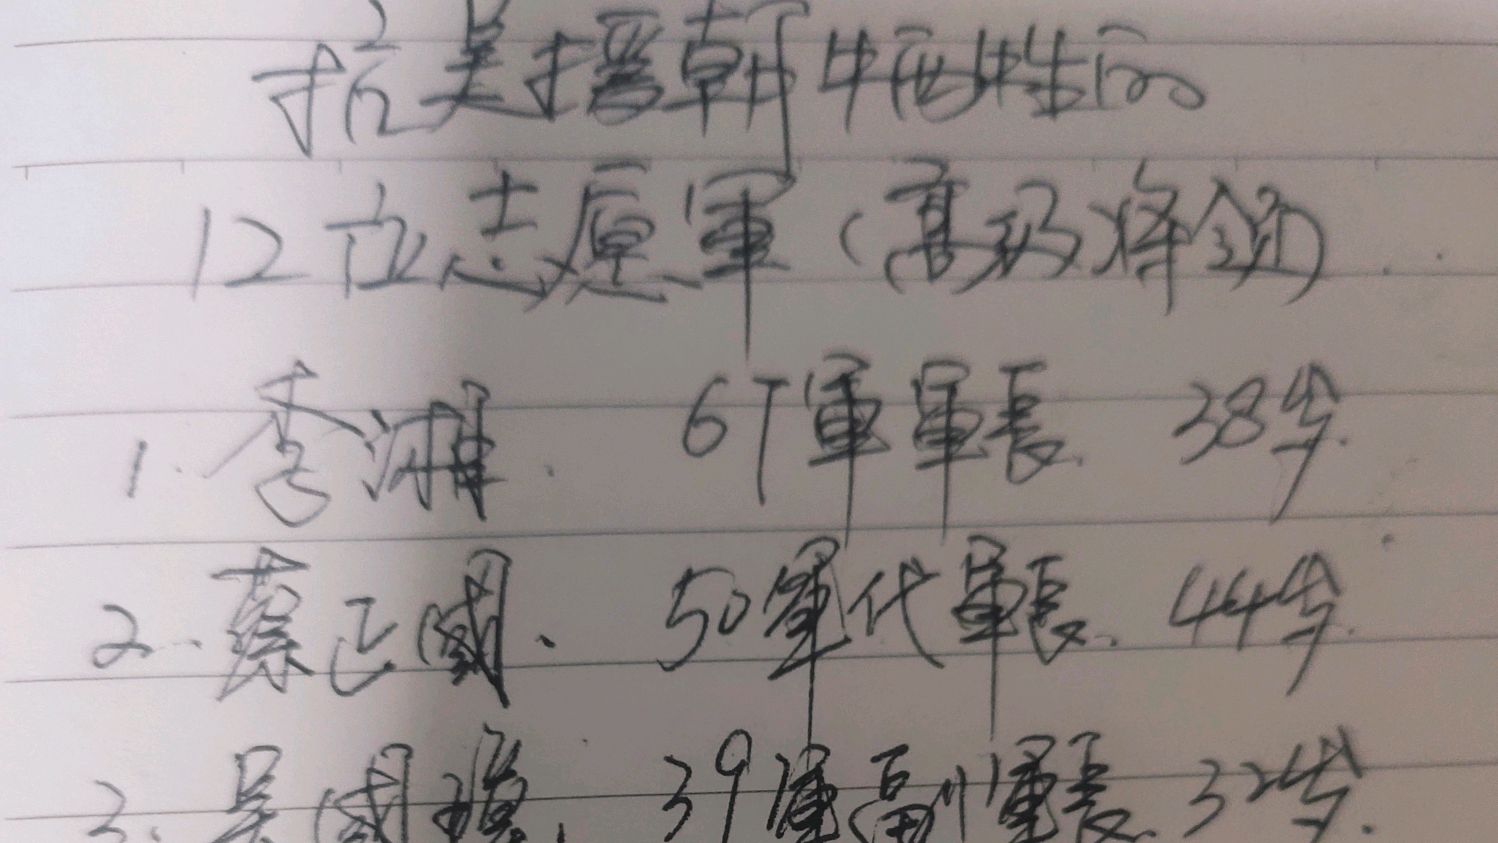 抗美援朝牺牲的
12位志愿軍(高级将领)
1.李湘. 67軍軍長 38岁.
2.蔡正國. 50軍代軍長. 44岁.
3.吴國璋. 39軍副軍長. 32岁.